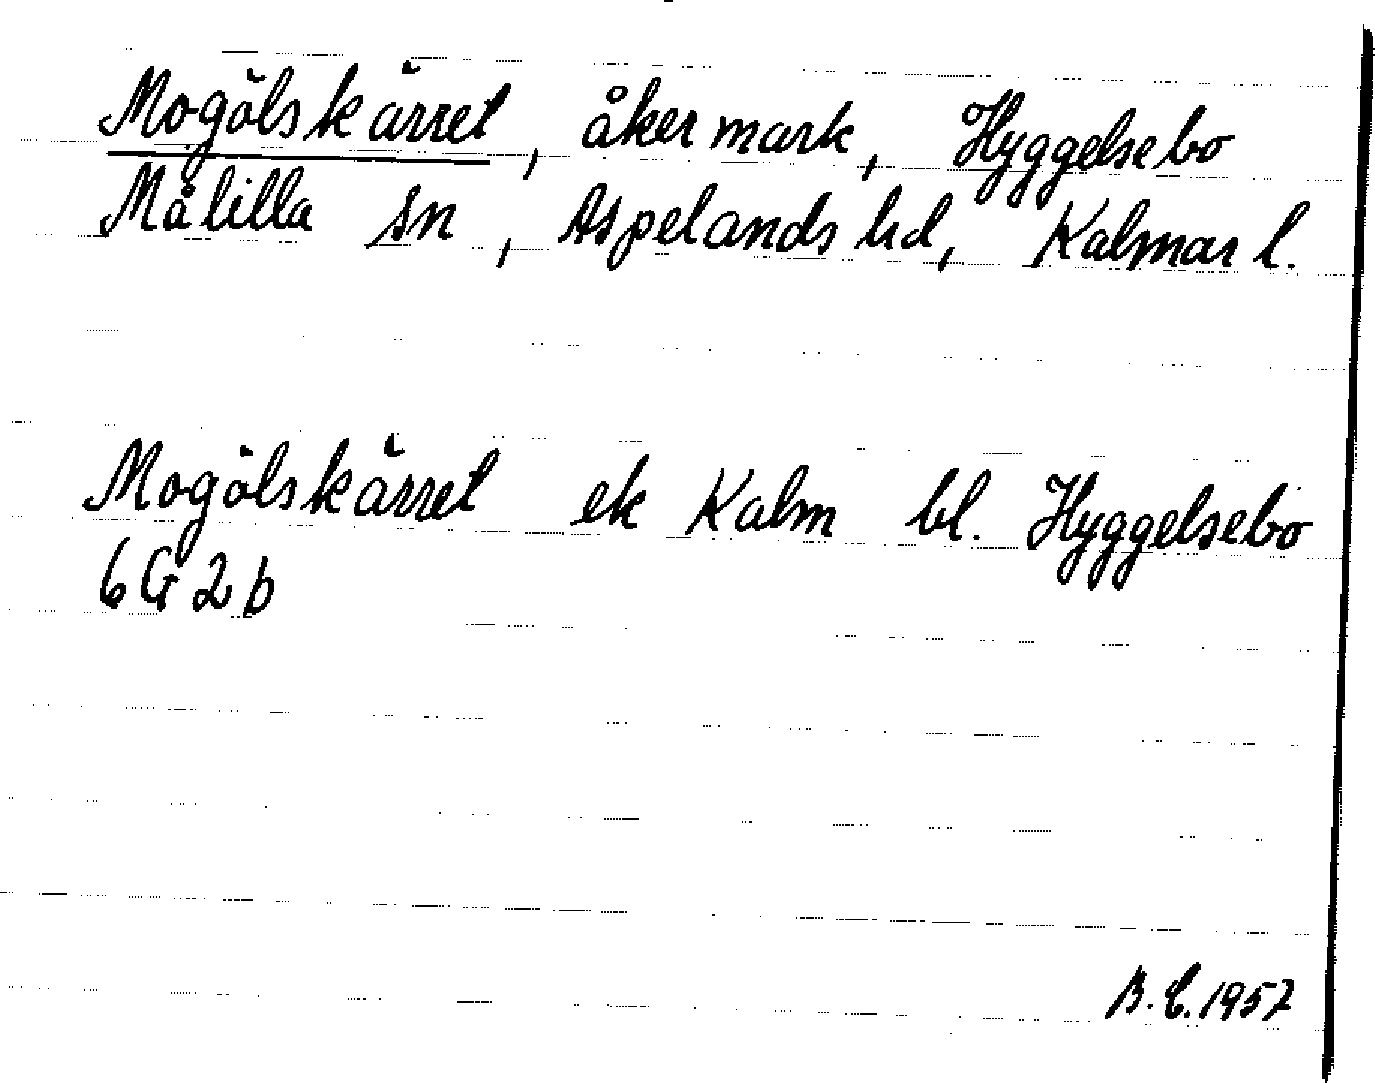 Mogölskärret, åkermark, Hyggelsebo
Målilla sn, Aspelands hd, Kalmar l.
Mogölskärret ek Kalm bl. Hyggelsebo
6G2b
B.C.1957